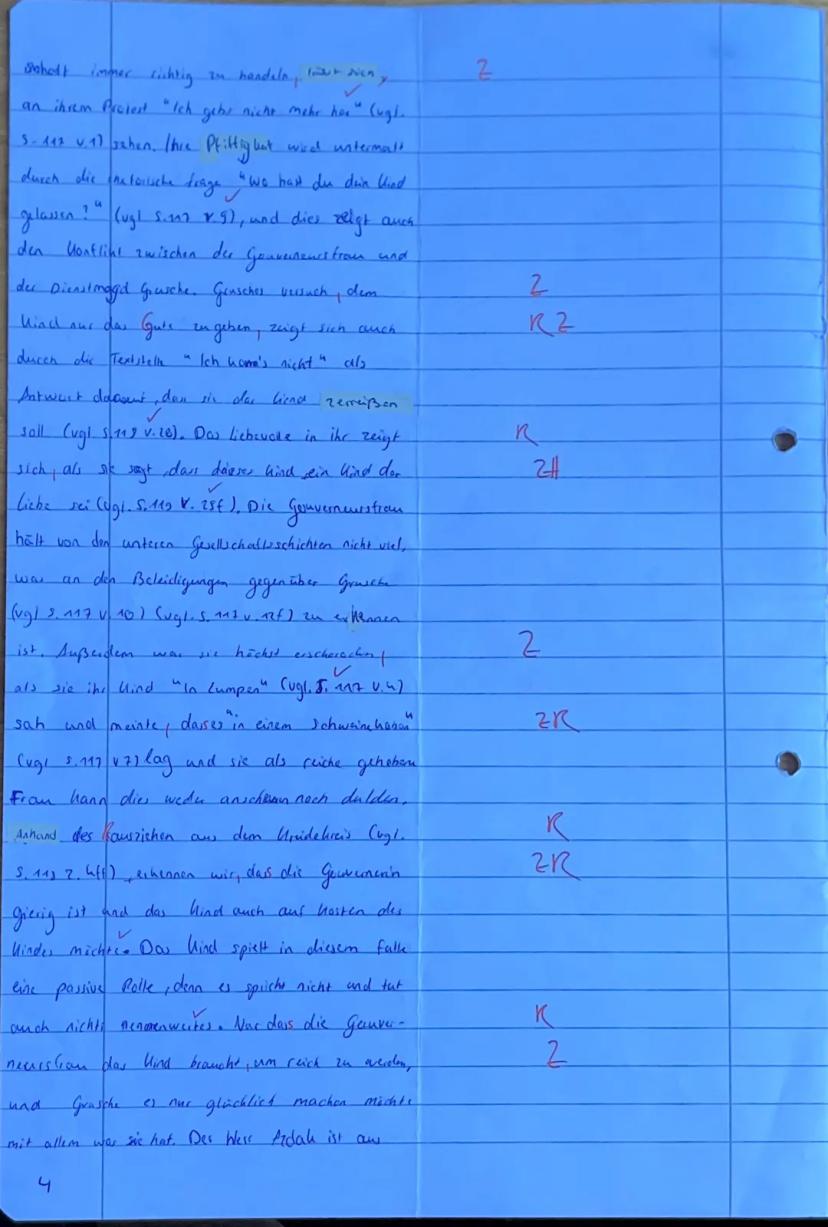 immer richtig zu handeln, lässt sich, Z
an ihrem Protest "Ich gebs nicht mehr her" (vgl.
S. 117 V.1) sehen. Ihre Pfiffigkeit wird untermalt
durch die rhetorische Frage "Wo hast du dein Kind
gelassen?" (vgl S.117 V.9), und dies zeigt auch
den Konflikt zwischen der Gouverneursfrau und
der Dienstmagd Grusche. Grusches Versuch, dem Z
Kind nur das Gute zu geben, zeigt sich auch R Z
durch die Textstelle "Ich kann's nicht" als
Antwort darauf, dass sie das Kind zerreißen
soll (vgl S.119 V.20). Das liebevolle in ihr zeigt R
sich, als sie sagt, dass dieses Kind ein Kind der ZA
Liebe sei (vgl. S.119 V.25f). Die Gouverneursfrau
hält von den unteren Gesellschaftsschichten nicht viel,
was an den Beleidigungen gegenüber Grusche
(vgl S.117 V 10) (vgl. S.117 V.12f) zu erkennen
ist. Außerdem war sie höchst erschrocken, Z
als sie ihr Kind "In Lumpen" (vgl. S. 117 V.4)
sah und meinte, dass es "in einem Schweinekoben" ZR
(vgl S.117 V7) lag und sie als reiche gehobene
Frau kann dies weder anschauen noch dulden.
Anhand des Rausziehen aus dem Kreidekreis (vgl. R
S. 119 Z. 4ff), erkennen wir, dass die ZR
gierig ist und das Kind auch auf Kosten des
Kindes möchte. Das Kind spielt in diesem Falle
eine passive Rolle, denn es spricht nicht und tut
auch nichts nennenwertes. Nur dass die Gouver- R
neursfrau das Kind braucht, um reich zu werden, Z
und Grusche es nur glücklich machen möchte
mit allem was sie hat. Der ist aus
4